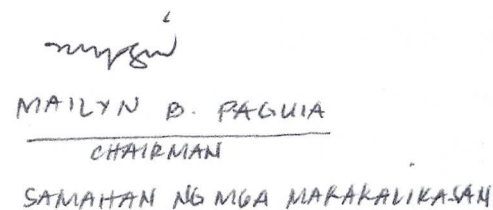 MAILYN B. PAGUIA
CHAIRMAN
SAMAHAN NG MGA MAKAKALIKASAN